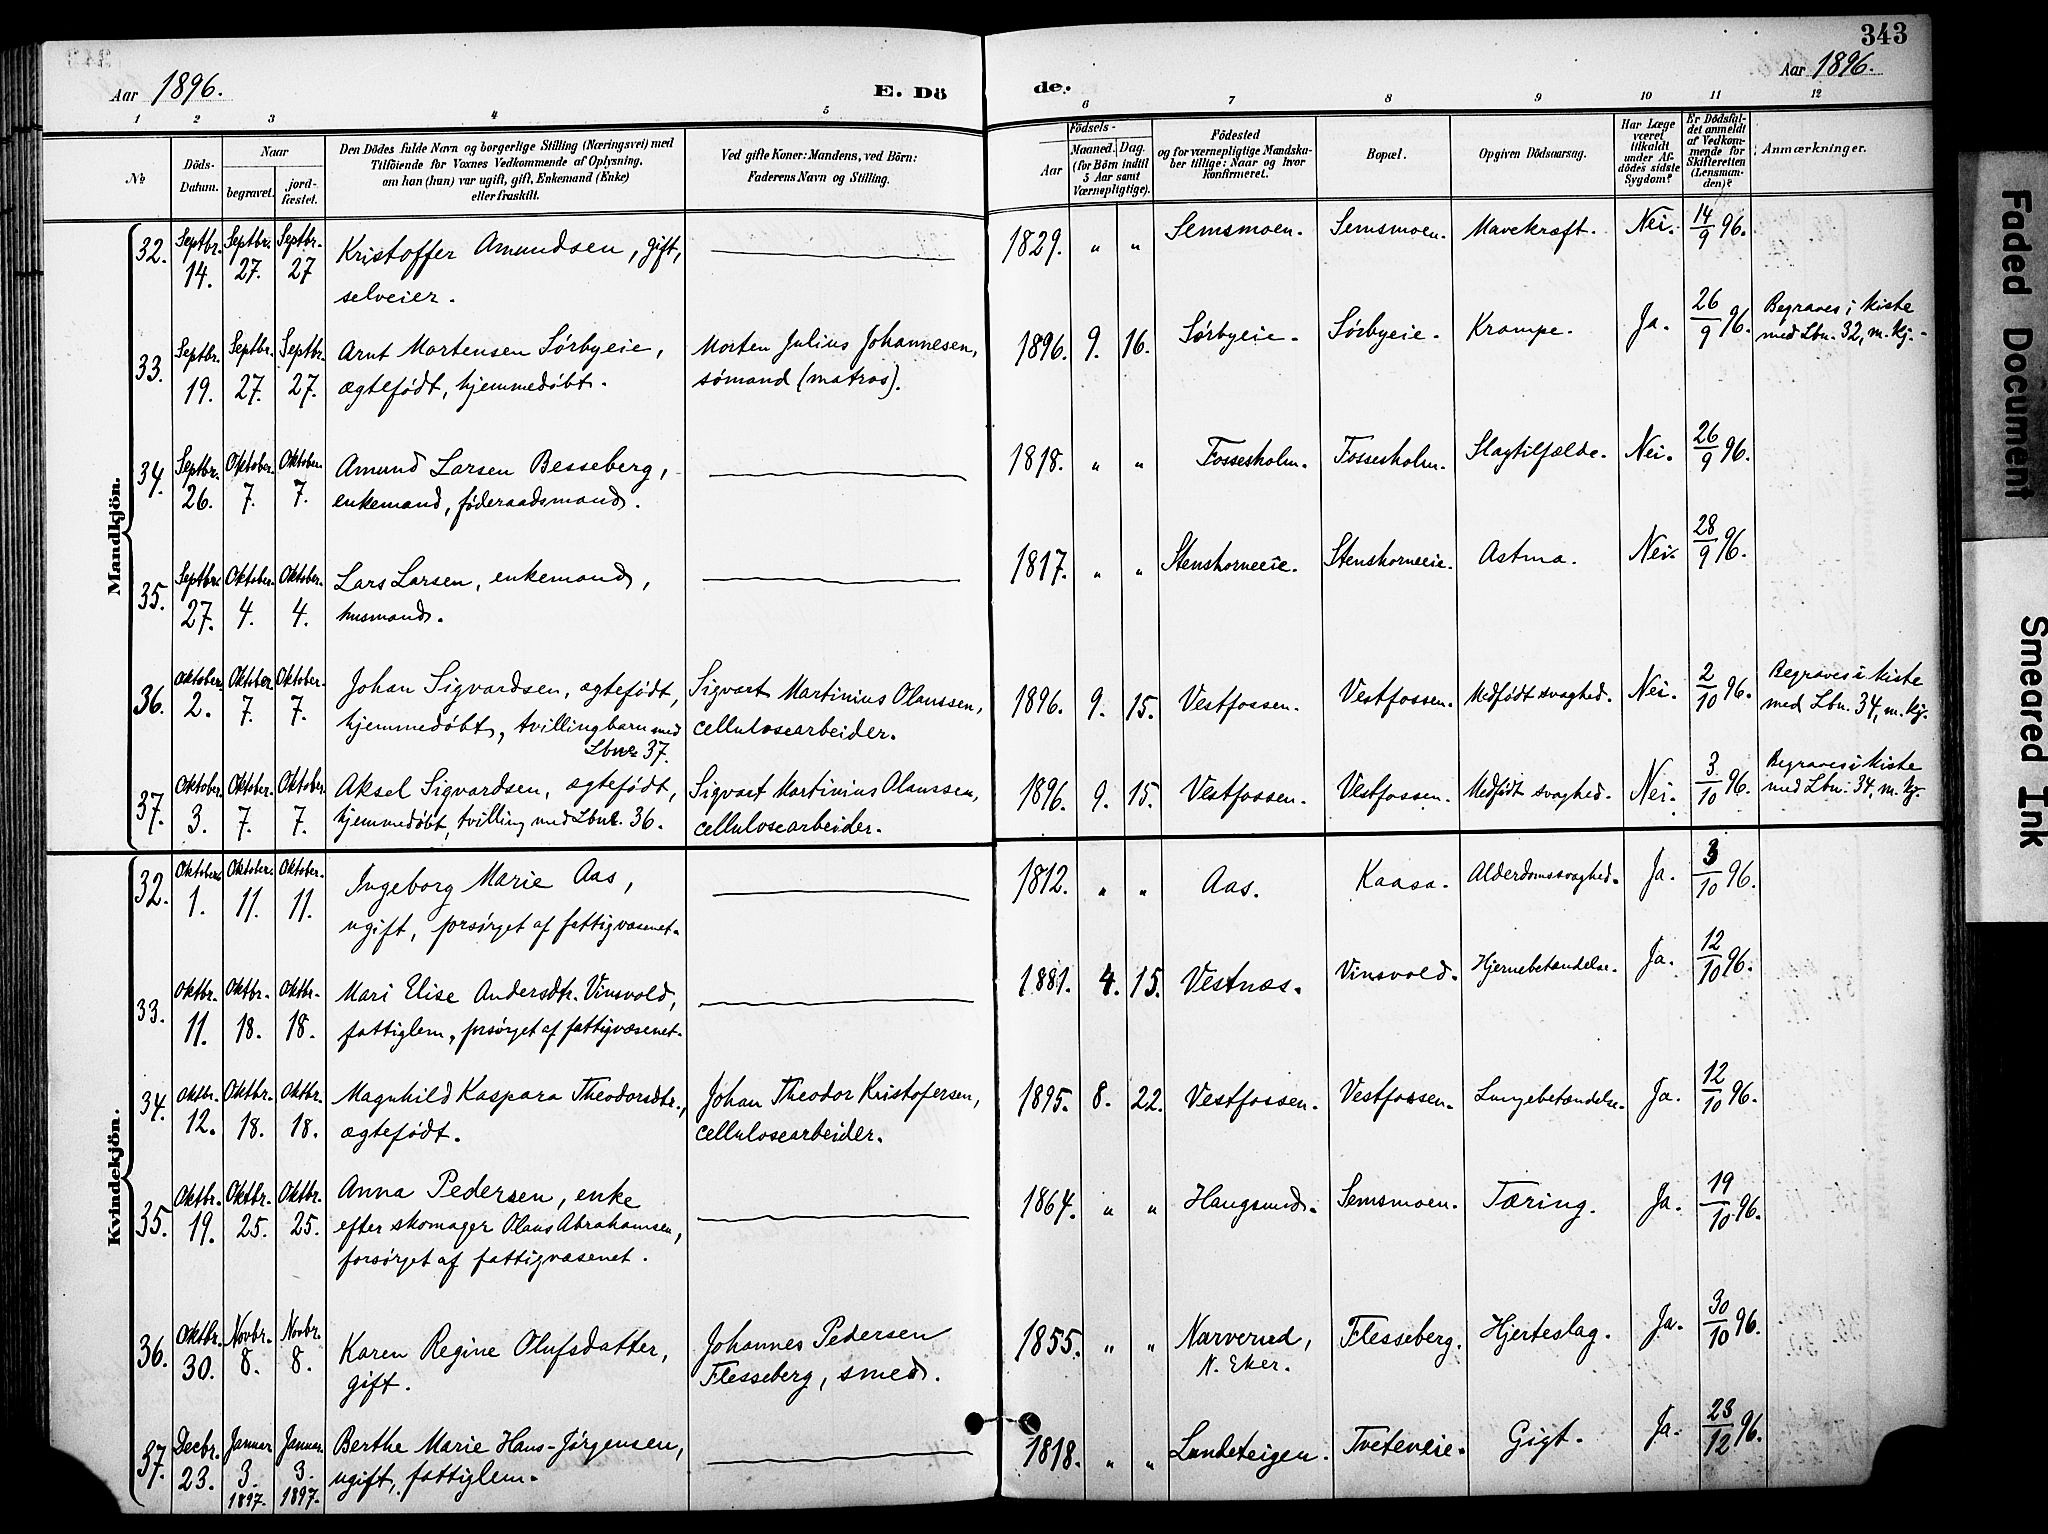 343
Aar 1896. E. Dö de. Aar 1896.
1 2 3 4 5 6 7 8 9 10 11 12
No
Döds-
Datum.
Naar
begravet.
jord-
fæstet.
Den Dödes fulde Navn og borgerlige Stilling (Næringsvei) med
Tilföiende for Voxnes Vedkommende af Oplysning,
om han (hun) var ugift, gift, Enkemand (Enke)
eller fraskilt.
Ved gifte Koner: Mandens, ved Börn:
Faderens Navn og Stilling.
Födsels-
Aar
Maaned. Dag.
(for Börn indtil
5 Aar samt
Værnepligtige).
Födested
og for værnepligtige Mandska-
ber tillige: Naar og hvor
konfirmeret.
Bopæl.
Opgiven Dödsaarsag.
Har Læge
været
tilkaldt
under Af-
dödes sidste
Sygdom?
Er Dödsfal-
det anmeldt
af Vedkom-
mende for
Skifteretten
(Lensman-
den)?
Anmærkninger.
Mandkjön.
32. Septbr. 14. Septbr. 27. Septbr. 27 Kristoffer Amundsen, gift, 1829. " " Semsmoen. Semsmoen. Mavekræft. Nei. 14/9 96.
selveier.
33. Septbr. 19. Septbr. 27. Septbr. 27. Arnt Mortensen Sørbyeie, Morten Julius Johannesen, 1896. 9. 16. Sørbyeie. Sørbyeie. Krampe. Ja. 26/9 96. Begraves i kiste
ægtefødt, hjemmedøbt. sømand (matros). med Lbn. 32, m. kj.
34. Septbr. 26. Oktober. 7. Oktober. 7. Amund Larsen Besseberg, 1818. " " Fossesholm. Fossesholm. Slagtilfælde. Nei. 26/9 96.
enkemand, føderaadsmand.
35. Septbr. 27. Oktober. 4. Oktober. 4. Lars Larsen, enkemand, 1817. " " Stenshorneeie. Stenshorneeie. Astma. Nei. 28/9 96.
husmand.
36. Oktober. 2. Oktober. 7. Oktober. 7. Johan Sigvardsen, ægtefødt, Sigvart Martinius Olaussen, 1896. 9. 15. Vestfossen. Vestfossen. Medfødt svaghed. Nei. 2/10 96. Begraves i kiste
hjemmedøbt, tvillingbarn med cellulosearbeider. med Lbn. 34, m. kj.
Lbnr 37.
37. Oktober. 3. Oktober. 7. Oktober. 7. Aksel Sigvardsen, ægtefødt, Sigvart Martinius Olaussen, 1896. 9. 15. Vestfossen. Vestfossen. Medfødt svaghed. Nei. 3/10 96. Begraves i kiste
hjemmedøbt, tvilling med Lbnr. 36. cellulosearbeider. med Lbn. 34, m. kj.
Kvindekjön.
32. Oktober. 1. Oktober. 11. Oktober. 11. Ingeborg Marie Aas, 1812. " " Aas. Kaasa. Alderdomssvaghed. Ja. 3/10 96.
ugift, forsørget af fattigvæsenet.
33. Oktbr. 11. Oktbr. 18. Oktbr. 18. Mari Elise Andersdtr. Vinsvold, 1881. 4. 15. Vestnæs. Vinsvold. Hjernebetændelse. Ja. 12/10 96.
fattiglem, forsørget af fattigvæsenet.
34. Oktbr. 12. Oktbr. 18. Oktbr. 18. Magnhild Kaspara Theodorsdtr., Johan Theodor Kristofersen, 1895. 8. 22. Vestfossen. Vestfossen. Lungebetændelse. Ja. 12/10 96.
ægtefødt. cellulosearbeider.
35. Oktbr. 19. Oktbr. 25. Oktbr. 25. Anna Pedersen, enke 1864. " " Haugsund. Semsmoen. Tæring. Ja. 19/10 96.
efter skomager Olaus Abrahamsen,
forsørget af fattigvæsenet.
36. Oktbr. 30. Novbr. 8. Novbr. 8. Karen Regine Olufsdatter, Johannes Pedersen 1855. " " Narverud, Flesseberg. Hjerteslag. Ja. 30/10 96.
gift. Flesseberg, smed. N. Eker.
37. Decbr. 23. Januar 3. 1897. Januar 3. 1897. Berthe Marie Hans-Jørgensen, 1818. " " Lundeteigen. Tveteneie. Gigt. Ja. 23/12 96.
ugift, fattiglem.
Faded Document
Smeared Ink